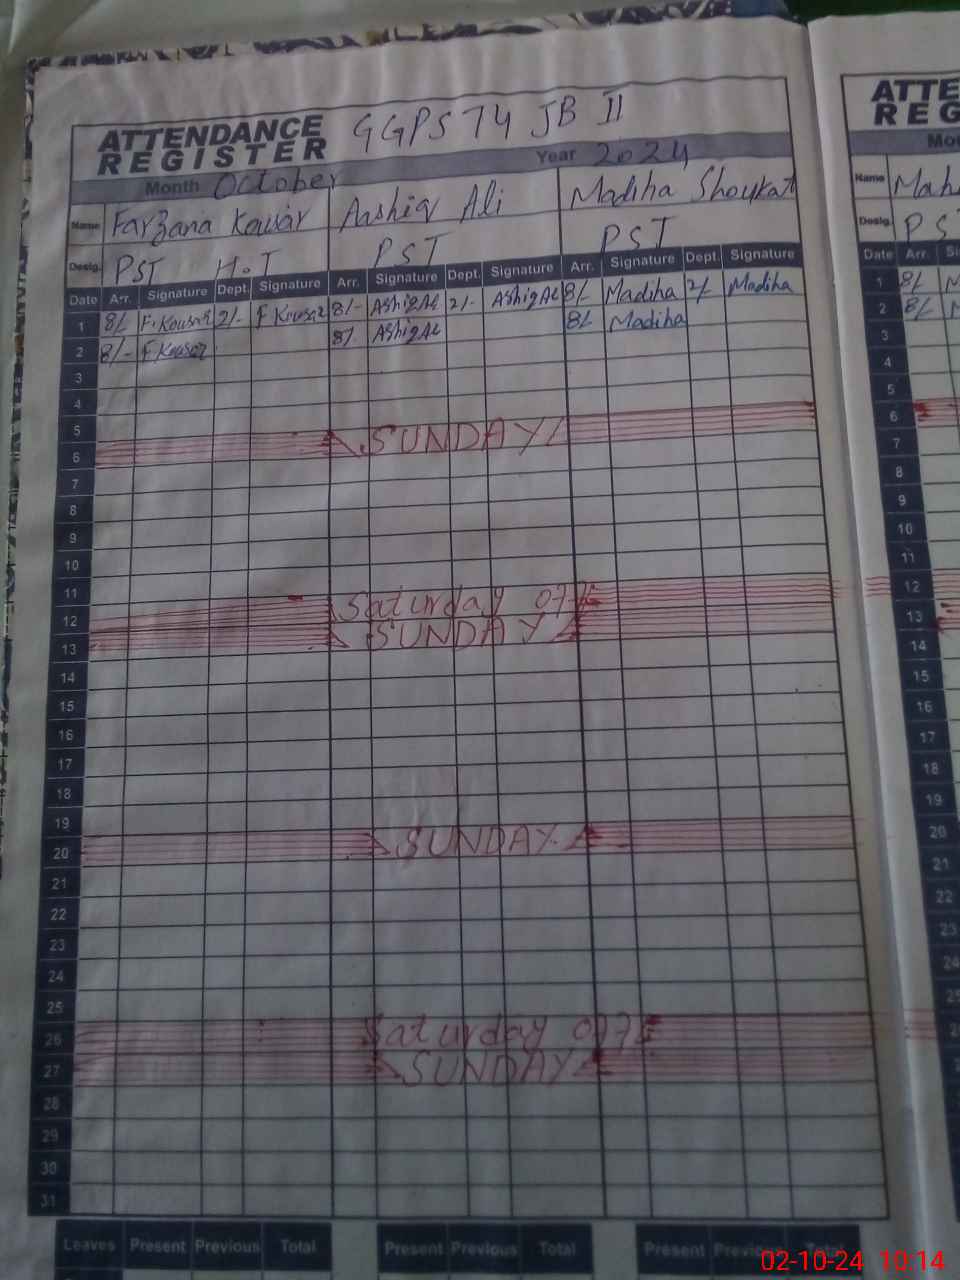 ATTENDANCE REGISTER GGPS 74 JB II
Month October Year 2024
Name Farzana Kousar Aashiq Ali Madiha Shoukat
Desig. PST H.T PST PST
Date Arr. Signature Dept. Signature Arr. Signature Dept. Signature Arr. Signature Dept. Signature
1 8/- F.Kousar 2/- F Kousar 8/- AShiqAl 2/- AShiqAl 8/- Madiha 2/- Madiha
2 8/- F Kousar 8/- AShiqAl 8/- Madiha
3
4
5
6 SUNDAY
7
8
9
10
11
12 Saturday off
13 SUNDAY
14
15
16
17
18
19
20 SUNDAY
21
22
23
24
25
26 Saturday off
27 SUNDAY
28
29
30
31
Leaves Present Previous Total Present Previous Total Present Previous Total
ATTE
REG
Mo
Name Mah
Desig. PS
Date Arr. Si
1 8/- M
2 8/- M
3
4
5
6
7
8
9
10
11
12
13
14
15
16
17
18
19
20
21
22
23
24
25
02-10-24 10:14